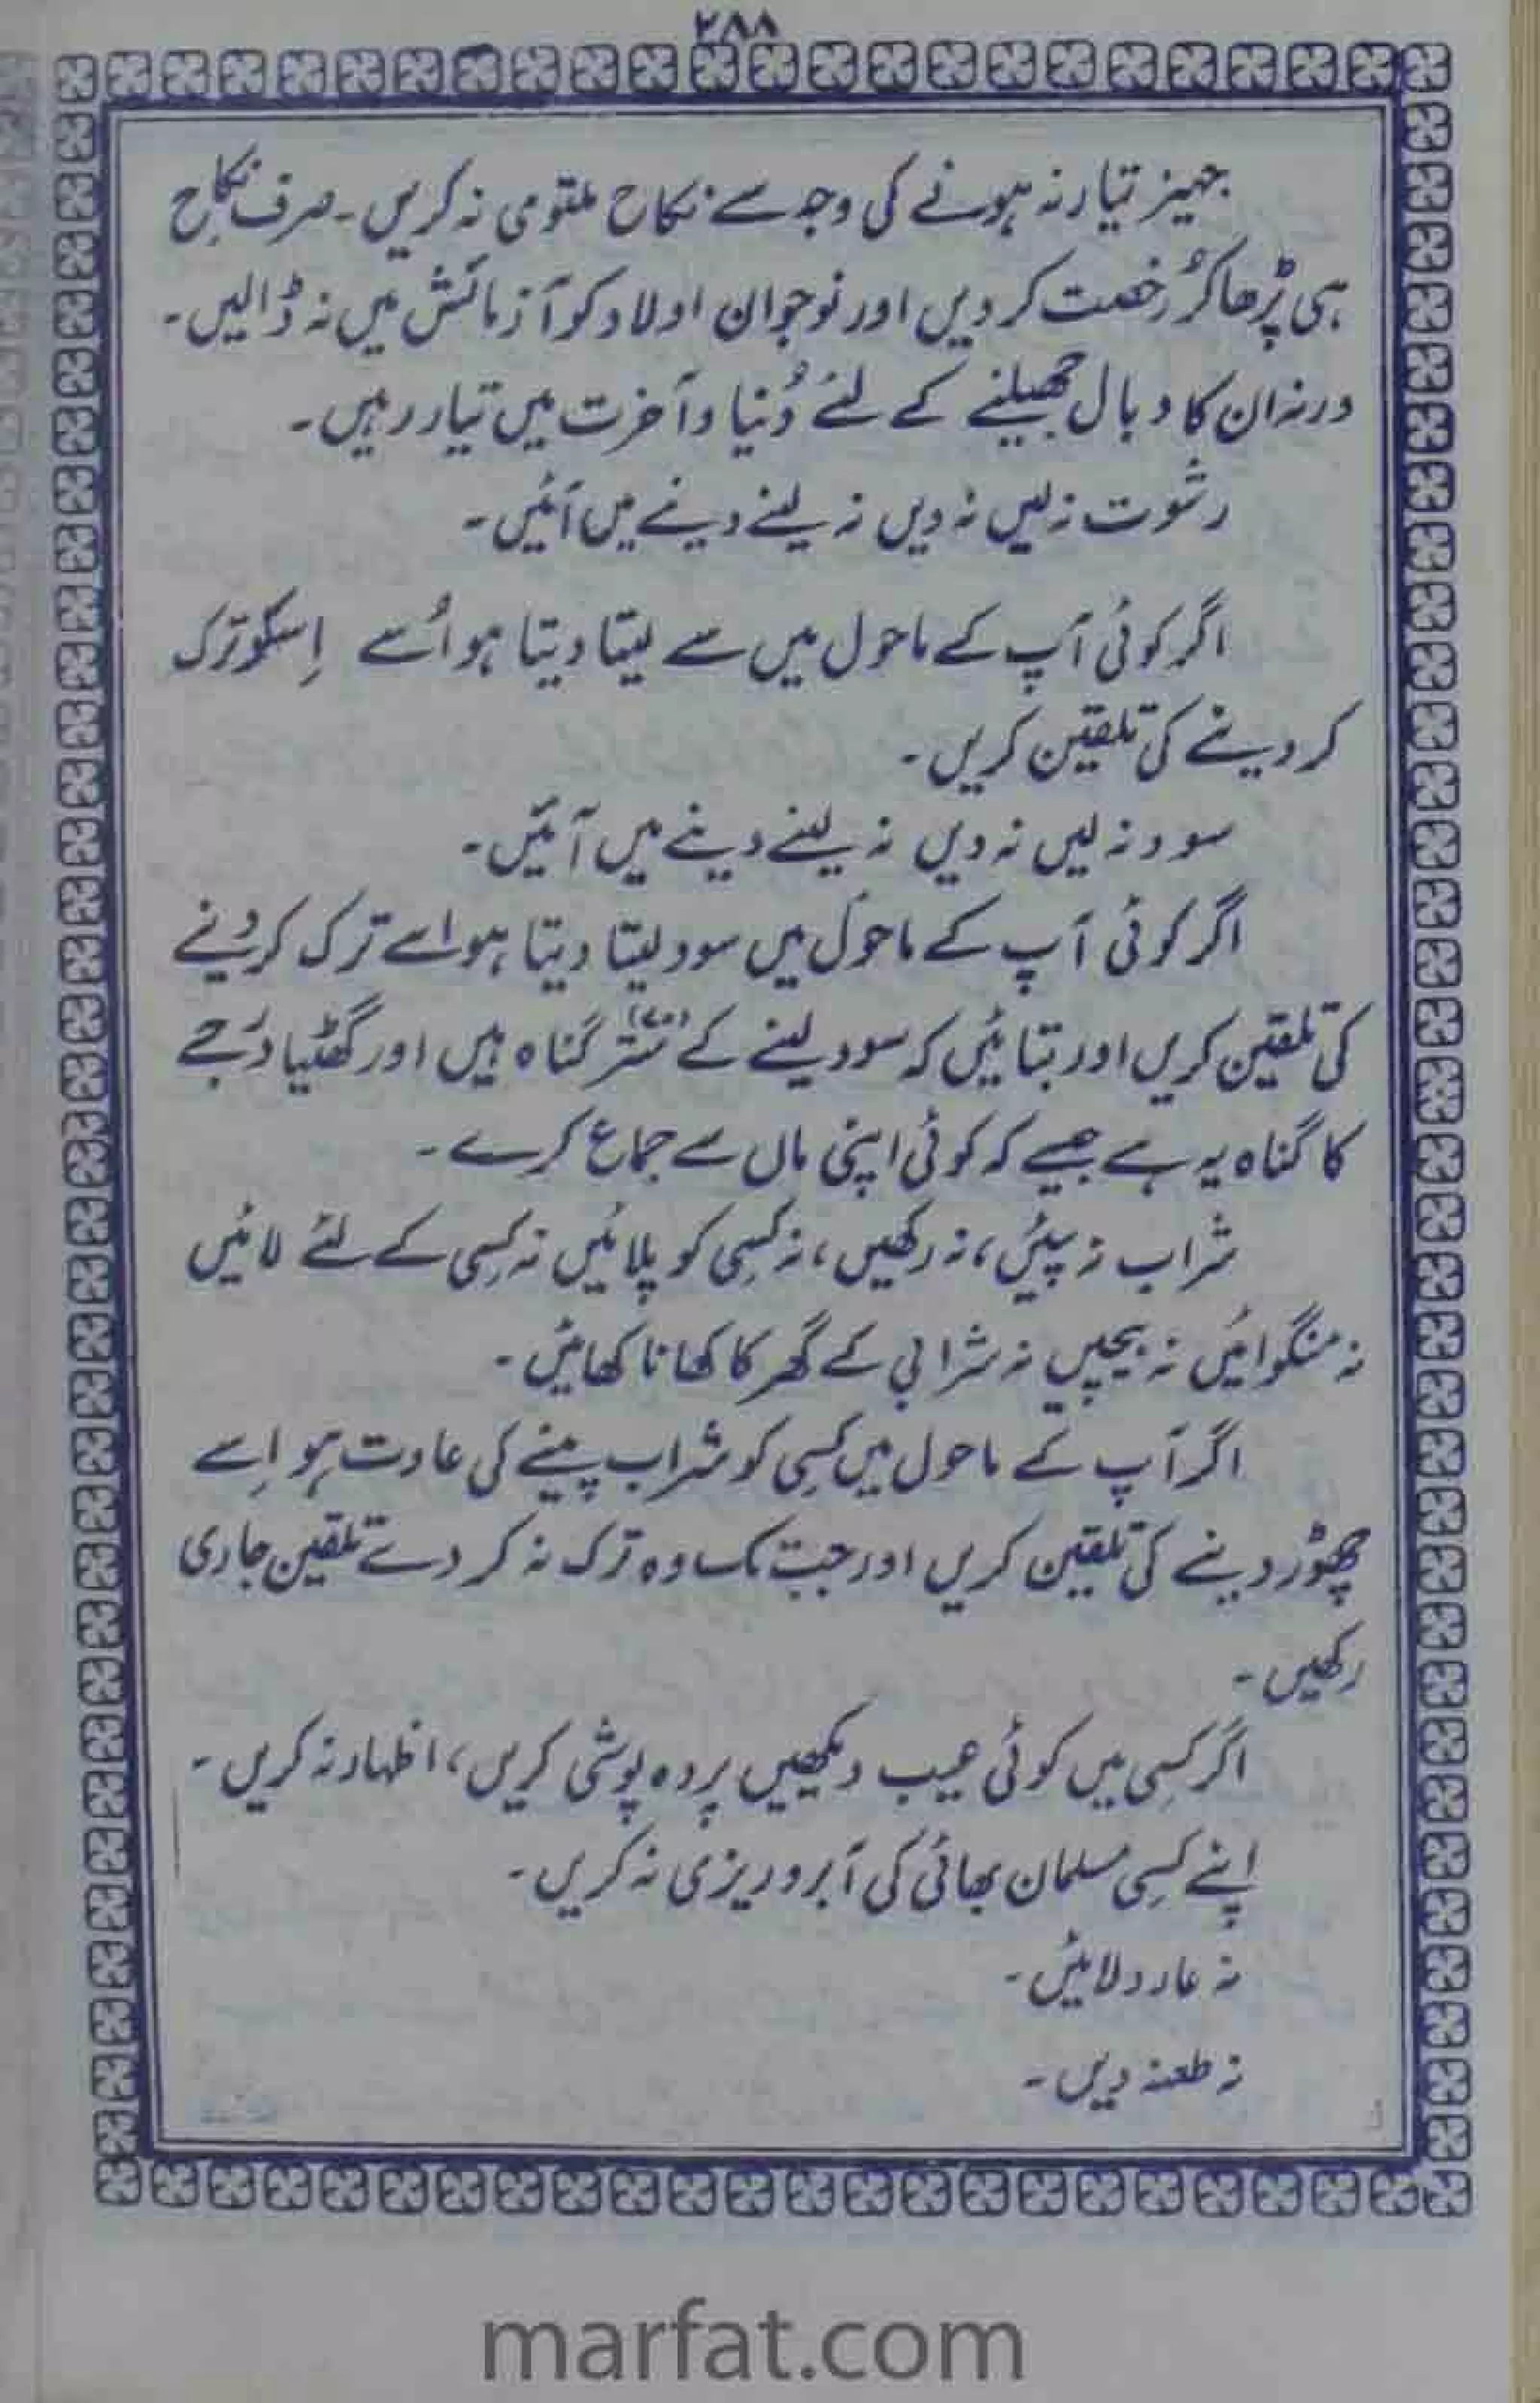 ۲۸۸
جہیز تیار نہ ہونے کی وجہ سے نکاح ملتوی نہ کریں۔ صرف نکاح
ہی پڑھا کر رخصت کر دیں اور نوجوان اولاد کو آزمائش میں نہ ڈالیں۔
ورنہ ان کا وبال جھیلنے کے لئے دُنیا و آخرت میں تیار رہیں۔
رشوت نہ لیں نہ دیں نہ لینے دینے میں آئیں۔
اگر کوئی آپ کے ماحول میں سے لیتا دیتا ہو اُسے اِسکو ترک
کر دینے کی تلقین کریں۔
سود نہ لیں نہ دیں نہ لینے دینے میں آئیں۔
اگر کوئی آپ کے ماحول میں سود لیتا دیتا ہو اسے ترک کر دینے
کی تلقین کریں اور بتائیں کہ سود لینے کے ستر (۷۰) گناہ ہیں اور گھٹیا درجے
کا گناہ یہ ہے جیسے کہ کوئی اپنی ماں سے جماع کرے۔
شراب نہ پیئں، نہ رکھیں، نہ کسِی کو پلائیں نہ کسِی کے لئے لائیں
نہ منگوائیں نہ بیچیں نہ شرابی کے گھر کا کھانا کھائیں۔
اگر آپ کے ماحول میں کسِی کو شراب پینے کی عادت ہو اِسے
چھوڑ دینے کی تلقین کریں اور جب تک وہ ترک نہ کر دے تلقین جاری
رکھیں۔
اگر کسِی میں کوئی عیب دیکھیں پردہ پوشی کریں، اظہار نہ کریں۔
اپنے کسِی مسلمان بھائی کی آبروریزی نہ کریں۔
نہ عار دلائیں۔
نہ طعنہ دیں۔
marfat.com